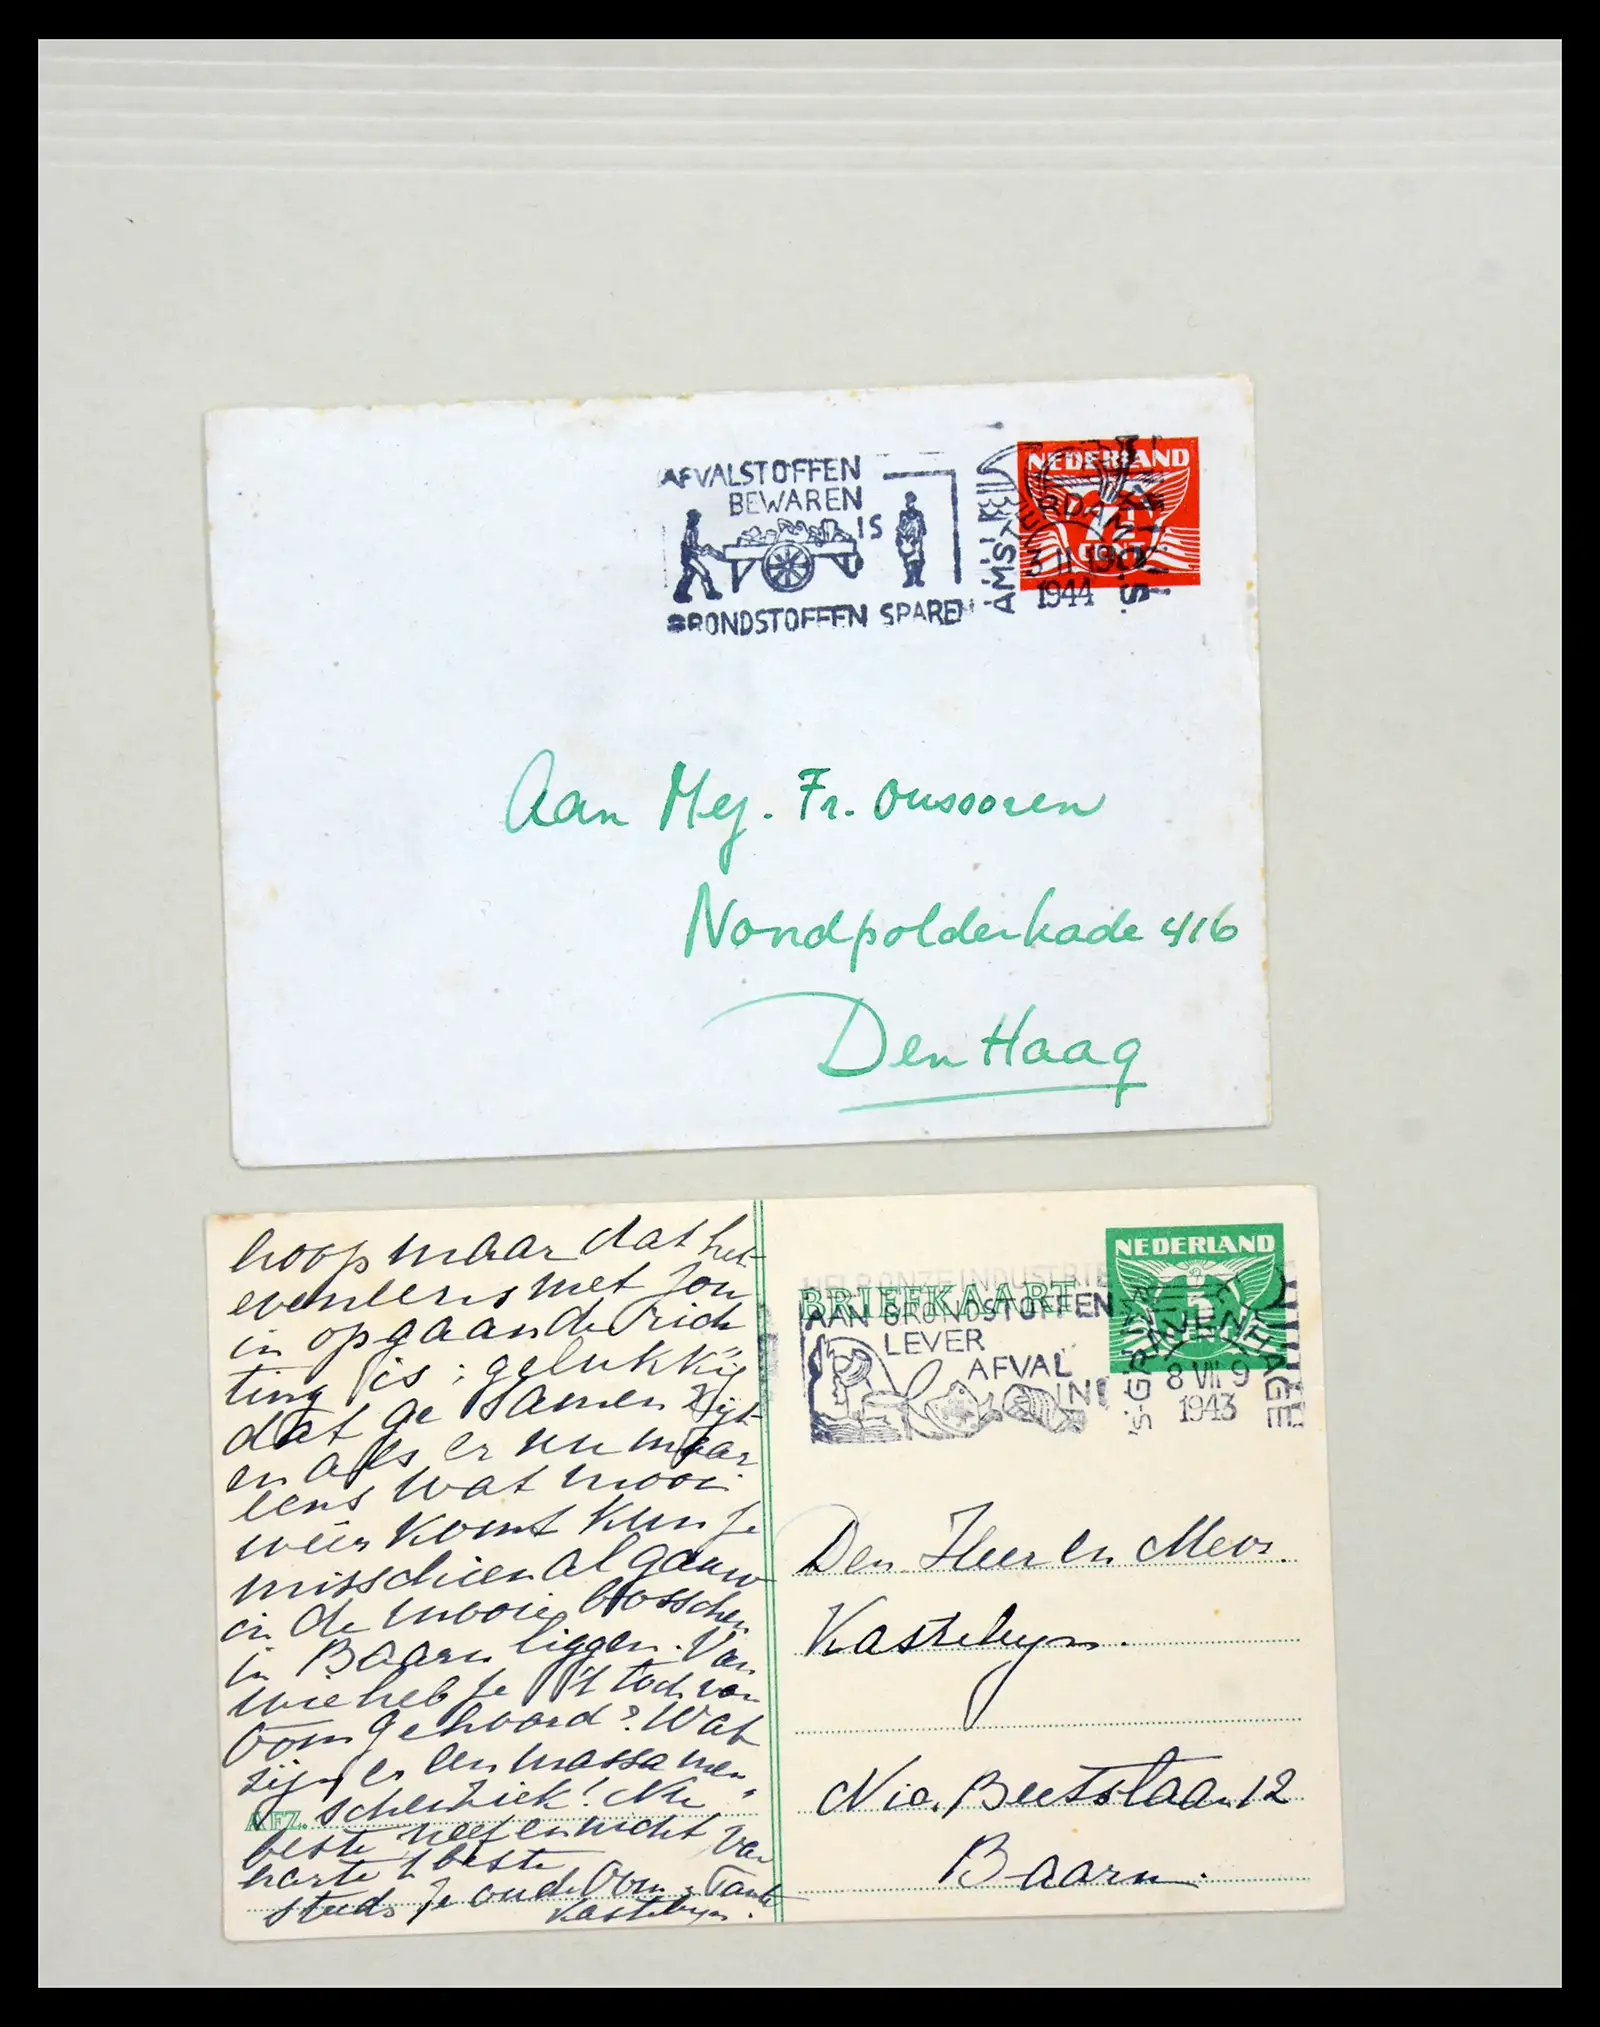 AFVALSTOFFEN
BEWAREN
IS
GRONDSTOFFEN SPAREN
AMSTERDAM C.S.
1944
NEDERLAND
7½
CENT
Aan Mej. Fr. Oussoren
Noordpolderkade 416
Den Haag
hoop maar dat het
eveneens met jou
in opgaande rich
ting is; gelukkig
dat ge samen zijt
en als er nu maar
eens wat mooi
weer komt kun je
misschien al gauw
in de mooie bosschen
in Baarn liggen. Van
wie heb je 't toch van
Oom gehoord? Wat
zijn er een massa men
schen ziek! Nu
AFZ.
beste neef en nicht van
harte 't beste
steeds je oude Oom & Tante
Kasteleyn.
HELP ONZE INDUSTRIE
BRIEFKAART
AAN GRONDSTOFFEN
LEVER
AFVAL
IN!
NEDERLAND
'S-GRAVENHAGE
8 VII 9
1943
Den Heer en Mevr.
Kasteleyn.
Nic. Beetslaan 12
Baarn.